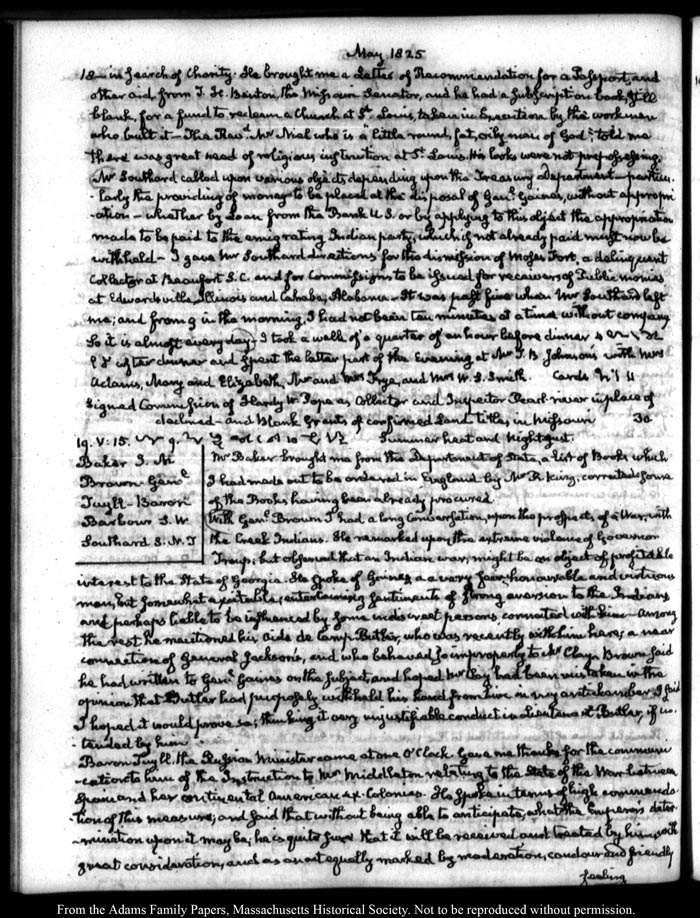 May 1825
18 — in search of Charity. He brought me a Letter of Recommendation for a Passport, and
other aid from T. H. Benton, the Missouri Senator, and he had a subscription book, still
blank, for a fund to redeem a Church at St. Louis, taken in Execution by the workmen
who built it — The Revd. Mr Nial who is "a little round, fat, oily man of God" told me
there was great need of religious instruction at St. Louis. His looks were not prepossessing.
Mr Southard called upon various objects depending upon the Treasury Department — particu-
-larly the providing of money to be placed at the disposal of Genl. Gaines, without appropri
-ation — whether by Loan from the Bank U.S. or by applying to this object the appropriation
made to be paid to the emigrating Indian party, which if not already paid must now be
withheld — I gave Mr Southard directions for the dismission of Moses Fort, a delinquent
Collector at Beaufort S.C. and for Commissions to be issued for receivers of Public monies
at Edwardsville, Illinois and Cahaba, Alabama — It was past five when Mr Southard left
me; and from 9 in the morning, I had not been ten minutes at a time without company
So it is almost every day — I took a walk of a quarter of an hour before dinner
after dinner and spent the latter part of the Evening at Mr T. B. Johnson's with Mrs
Adams, Mary and Elizabeth, Mr and Mrs Frye, and Mrs W. S. Smith. Cards
Signed Commission of Hardy W. Pope as Collector and Inspector Pearl river in place of
declined — and Blank Grants of confirmed Land titles, in Missouri 30
19. V: 15. Summer heat and Night gust.
Baker J. M
Brown Genl
Tuyll Baron
Barbour S. W
Southard S. N. T
Mr Baker brought me from the Department of State, a list of Books which
I had made out to be ordered in England by Mr R. King, corrected some
of the Books having been already procured.
With Genl Brown I had a long Conversation, upon the prospects of a War, with
the Creek Indians. He remarked upon the extreme violence of Governor
Troup; but observed that an Indian war, might be an object of profitable
interest to the State of Georgia. He spoke of Gaines as a very fair, honourable and virtuous
man, but somewhat excitable; entertaining sentiments of strong aversion to the Indians
and perhaps liable to be influenced by some indiscreet persons connected with him — Among
the rest he mentioned his Aide de Camp Butler, who was recently with him here; a near
connection of General Jackson's, and who behaved so improperly to Mr Clay. Brown said
he had written to Genl. Gaines on the subject, and hoped Mr Clay had been mistaken in the
opinion that Butler had purposely withheld his hand from him in my antichamber. I said
I hoped it would prove so; thinking it very unjustifiable conduct in Lieutenant Butler, if in-
-tended by him
Baron Tuyll the Russian Minister came at one O'Clock. Gave me thanks for the commun
-cation to him of the Instruction to Mr Middleton relating to the State of the War between
Spain and her continental American ex-Colonies. He spoke in terms of high commenda
-tion of this measure; and said that without being able to anticipate, what the Emperor's deter
-mination upon it may be, he is quite sure that it will be received and treated by him, with
great consideration, and as an act equally marked by moderation, candour and friendly
feeling
From the Adams Family Papers, Massachusetts Historical Society. Not to be reproduced without permission.